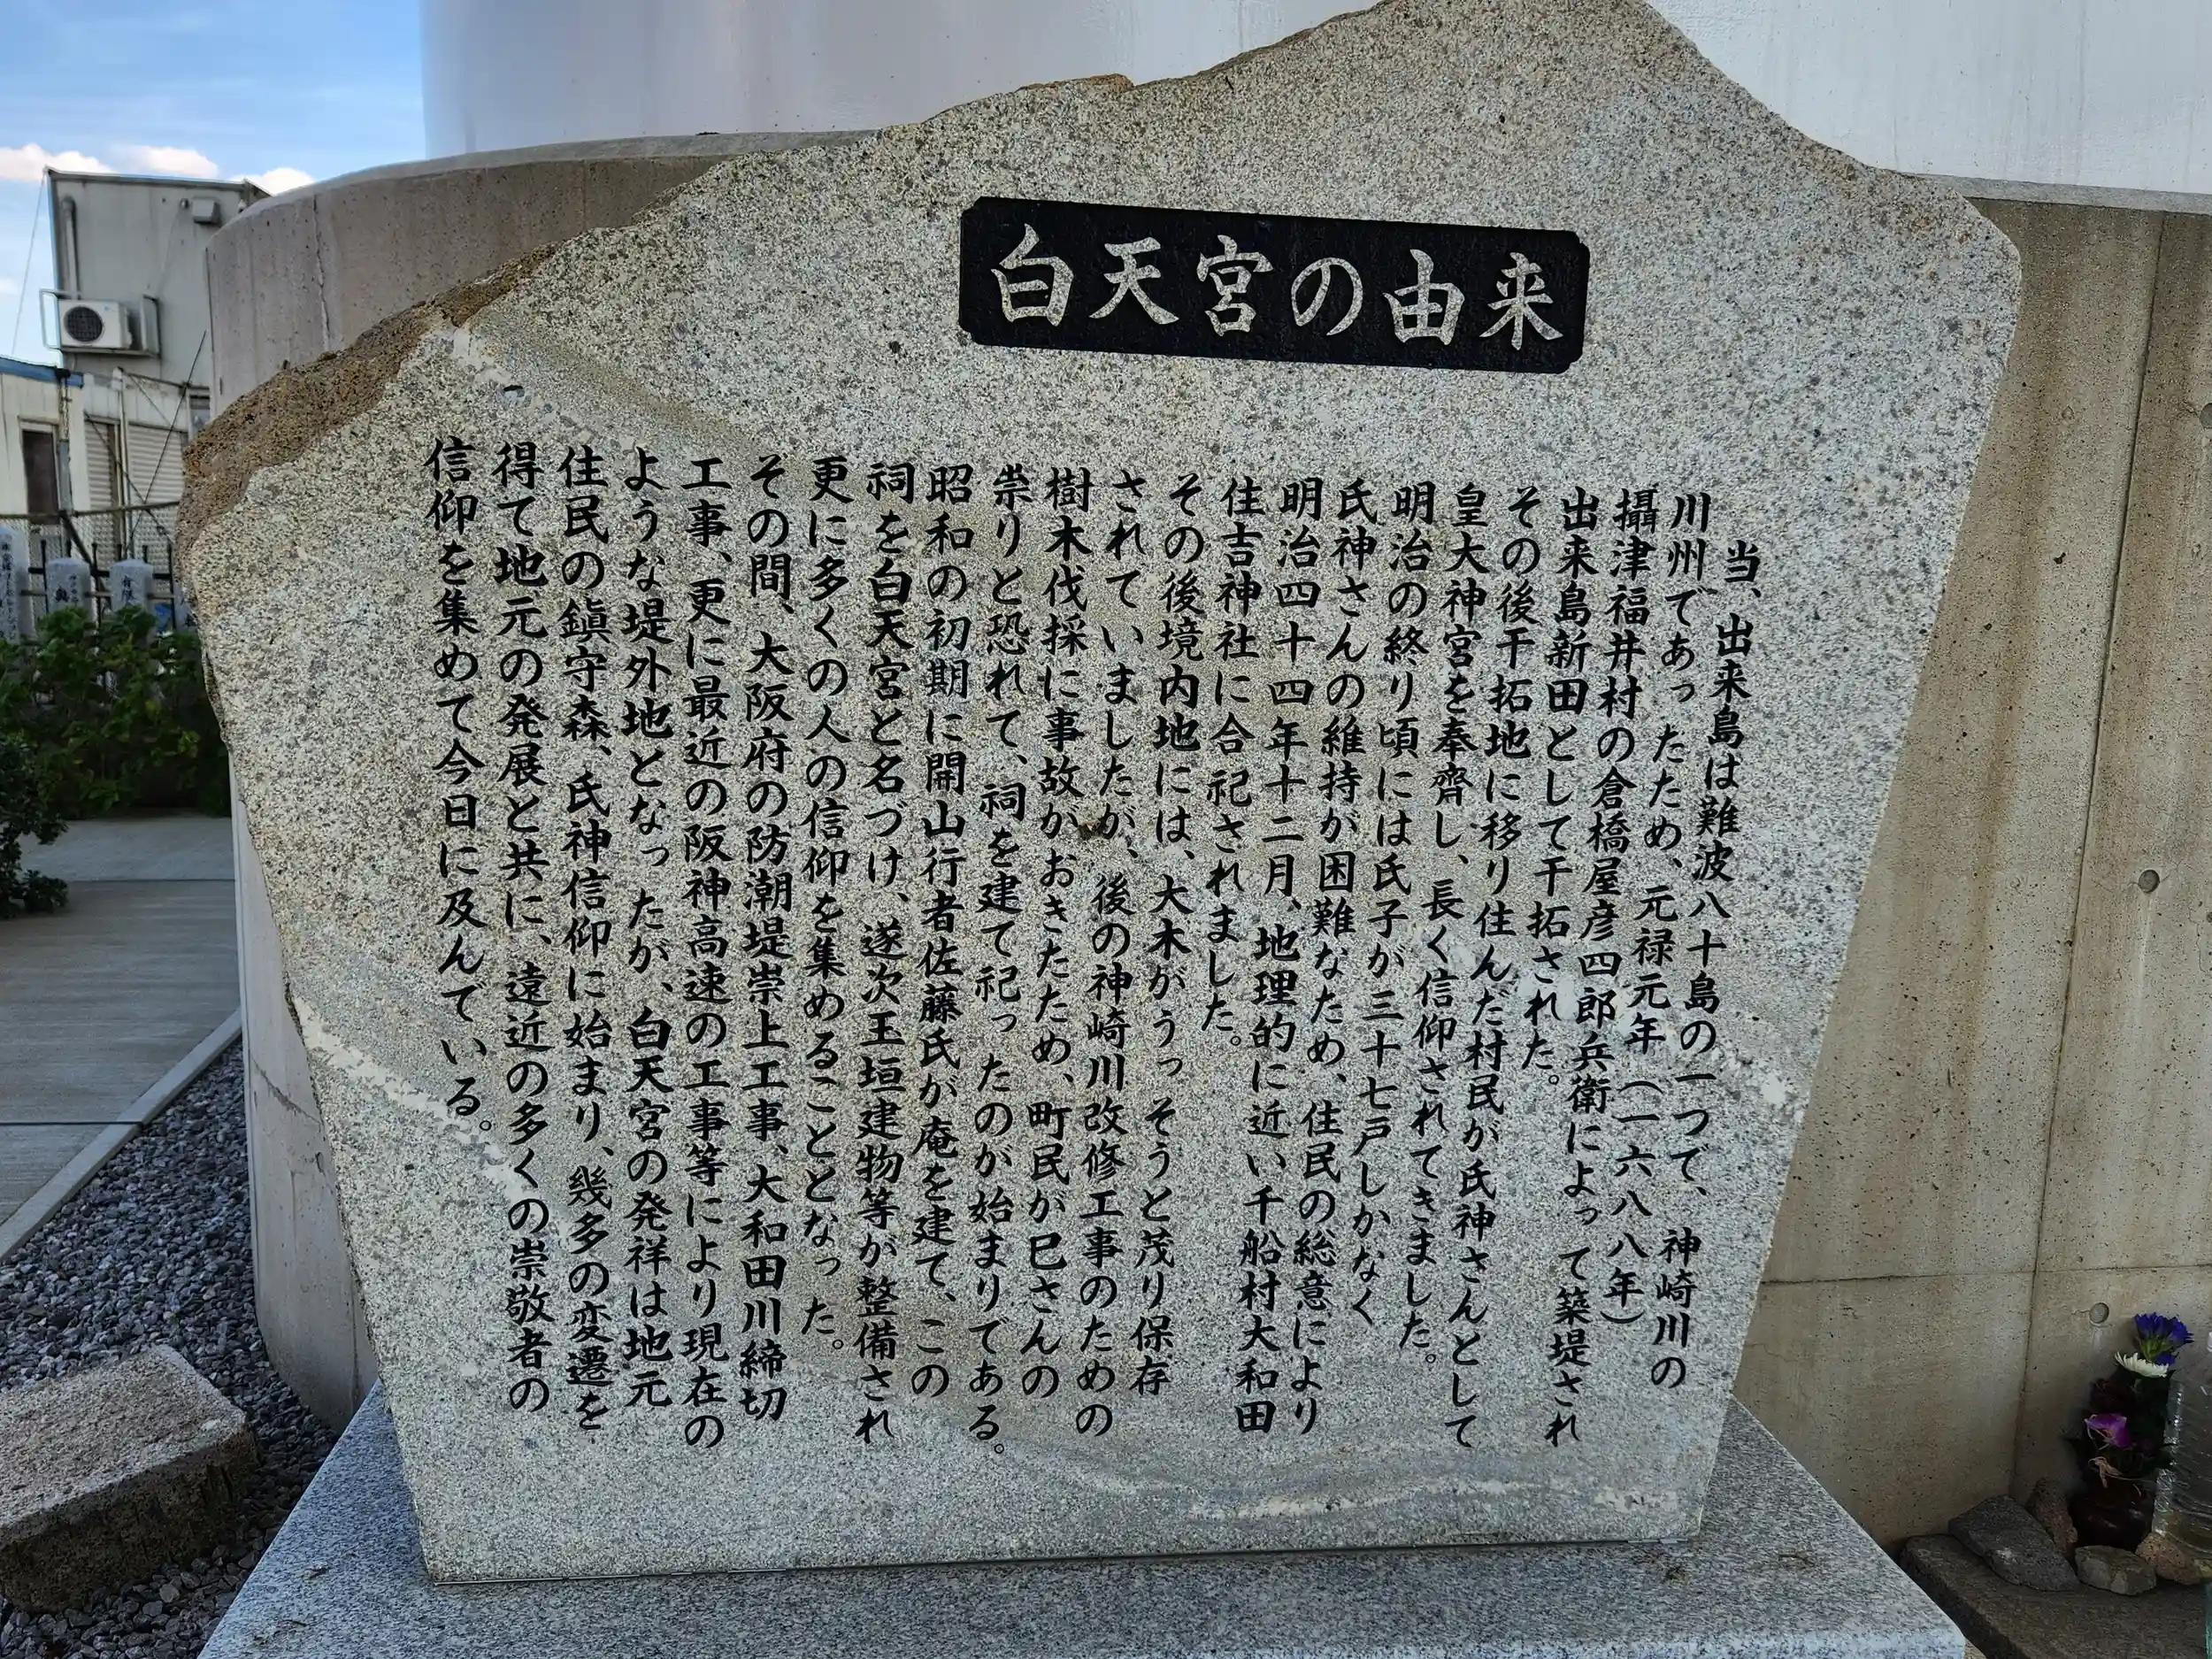 白天宮の由来
当、出来島は難波八十島の一つで、神崎川の
川州であったため、元禄元年（一六八八年）
攝津福井村の倉橋屋彦四郎兵衛によって築堤され
出来島新田として干拓された。
その後干拓地に移り住んだ村民が氏神さんとして
皇大神宮を奉齊し、長く信仰されてきました。
明治の終り頃には氏子が三十七戸しかなく
氏神さんの維持が困難なため、住民の総意により
明治四十四年十二月、地理的に近い千船村大和田
住吉神社に合祀されました。
その後境内地には、大木がうっそうと茂り保存
されていましたが、後の神崎川改修工事のための
樹木伐採に事故がおきたため、町民が巳さんの
祟りと恐れて、祠を建て祀ったのが始まりである。
昭和の初期に開山行者佐藤氏が庵を建て、この
祠を白天宮と名づけ、遂次玉垣建物等が整備され
更に多くの人の信仰を集めることとなった。
その間、大阪府の防潮堤崇上工事、大和田川締切
工事、更に最近の阪神高速の工事等により現在の
ような堤外地となったが、白天宮の発祥は地元
住民の鎮守森、氏神信仰に始まり、幾多の変遷を
得て地元の発展と共に、遠近の多くの崇敬者の
信仰を集めて今日に及んでいる。
有限